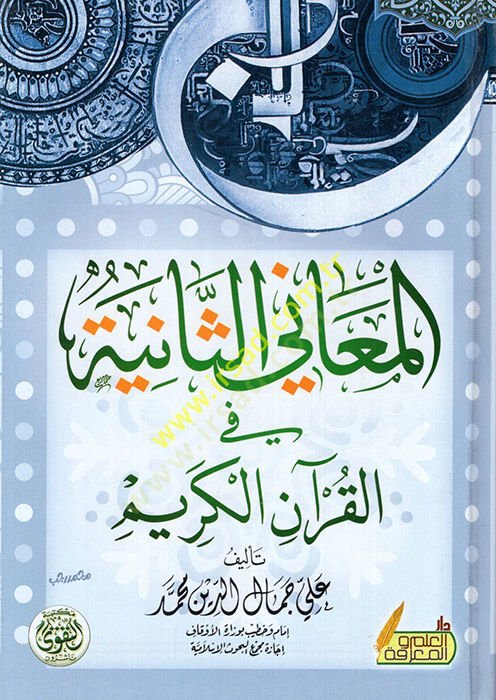 المَعَاني الثَّانِيَةُ
في
القُرآنِ الكَرِيمِ
تأليف
علي جمال الدين محمد
إمام وخطيب بوزارة الأوقاف
إجازة مجمع البحوث الإسلامية
www.irsad.com.tr
مكتبة
التقوى
ناشرون
دار
العلم و
المعرفة